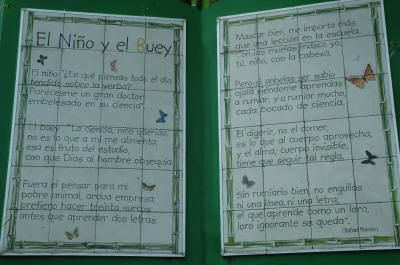 El Niño y el Buey
El niño: "¿En qué piensas todo el día
tendido sobre la yerba?
Parécesme un gran doctor
embelesado en su ciencia".
El buey: "La ciencia, niño querido,
no es lo que a mí me alimenta;
esa es fruto del estudio,
con que Dios al hombre obsequia.
Fuera el pensar para mí
pobre animal, ardua empresa;
prefiero hacer treinta surcos
antes que aprender dos letras.
Mascar bien, me importa más
que una lección en la escuela.
Con las muelas masco yo,
tú, niño, con la cabeza.
Pero si anhelas ser sabio
ojalá viéndome aprendas
a rumiar, y a rumiar mucho,
cada bocado de ciencia.
El digerir, no el comer,
es lo que al cuerpo aprovecha,
y el alma, cuerpo invisible,
tiene que seguir tal regla.
Sin rumiarlo bien, no engullas
ni una línea, ni una letra;
el que aprende como un loro,
loro ignorante se queda".
(Rafael Pombo)